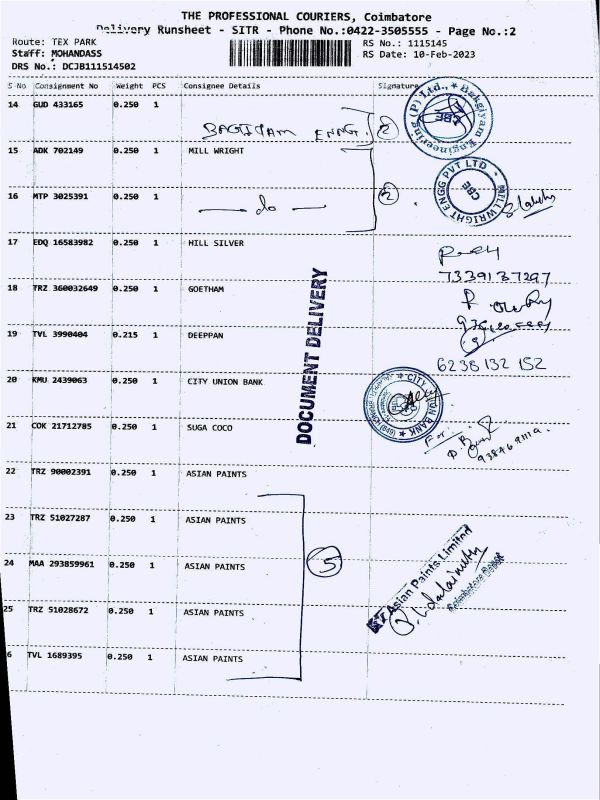 THE PROFESSIONAL COURIERS, Coimbatore
Delivery Runsheet - SITR - Phone No.:0422-3505555 - Page No.:2
Route: TEX PARK
RS No.: 1115145
Staff: MOHANDASS
RS Date: 10-Feb-2023
DRS No.: DCJB111514502
S No Consignment No Weight PCS Consignee Details Signature
14 GUD 433165 0.250 1
BAGIYAM ENNG. 2
Bakgiyam Engineering (P) Ltd., CBE
15 ADK 702149 0.250 1 MILL WRIGHT
MILLWRIGHT ENGG PVT LTD CBE
16 MTP 3025391 0.250 1 do 2
17 EDQ 16583982 0.250 1 HILL SILVER
7339137297
18 TRZ 360032649 0.250 1 GOETHAM
19 TVL 3990404 0.215 1 DEEPPAN
6238 132 152
DOCUMENT DELIVERY
20 KMU 2439063 0.250 1 CITY UNION BANK
CITY UNION BANK
21 COK 21712785 0.250 1 SUGA COCO
For
22 TRZ 90002391 0.250 1 ASIAN PAINTS
23 TRZ 51027287 0.250 1 ASIAN PAINTS
24 MAA 293859961 0.250 1 ASIAN PAINTS
5
Asian Paints Limited
25 TRZ 51028672 0.250 1 ASIAN PAINTS
6 TVL 1689395 0.250 1 ASIAN PAINTS